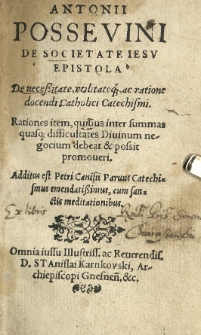 ANTONII
POSSEVINI
DE SOCIETATE IESV
EPISTOLA
De necessitate, vtilitateq́, ac ratione
docendi Catholici Catechismi.
Rationes item, quibus inter summas
quasq́ difficultates Diuinum ne-
gocium debeat & possit
promoueri.
Additus est Petri Canisii Paruus Catechi-
smus emendatissimus, cum san-
ctis meditationibus.
Ex libris
Omnia iussu Illustriss. ac Reuerendiss.
D. STAnislai Karnkovski, Ar-
chiepiscopi Gnesnen. &c.